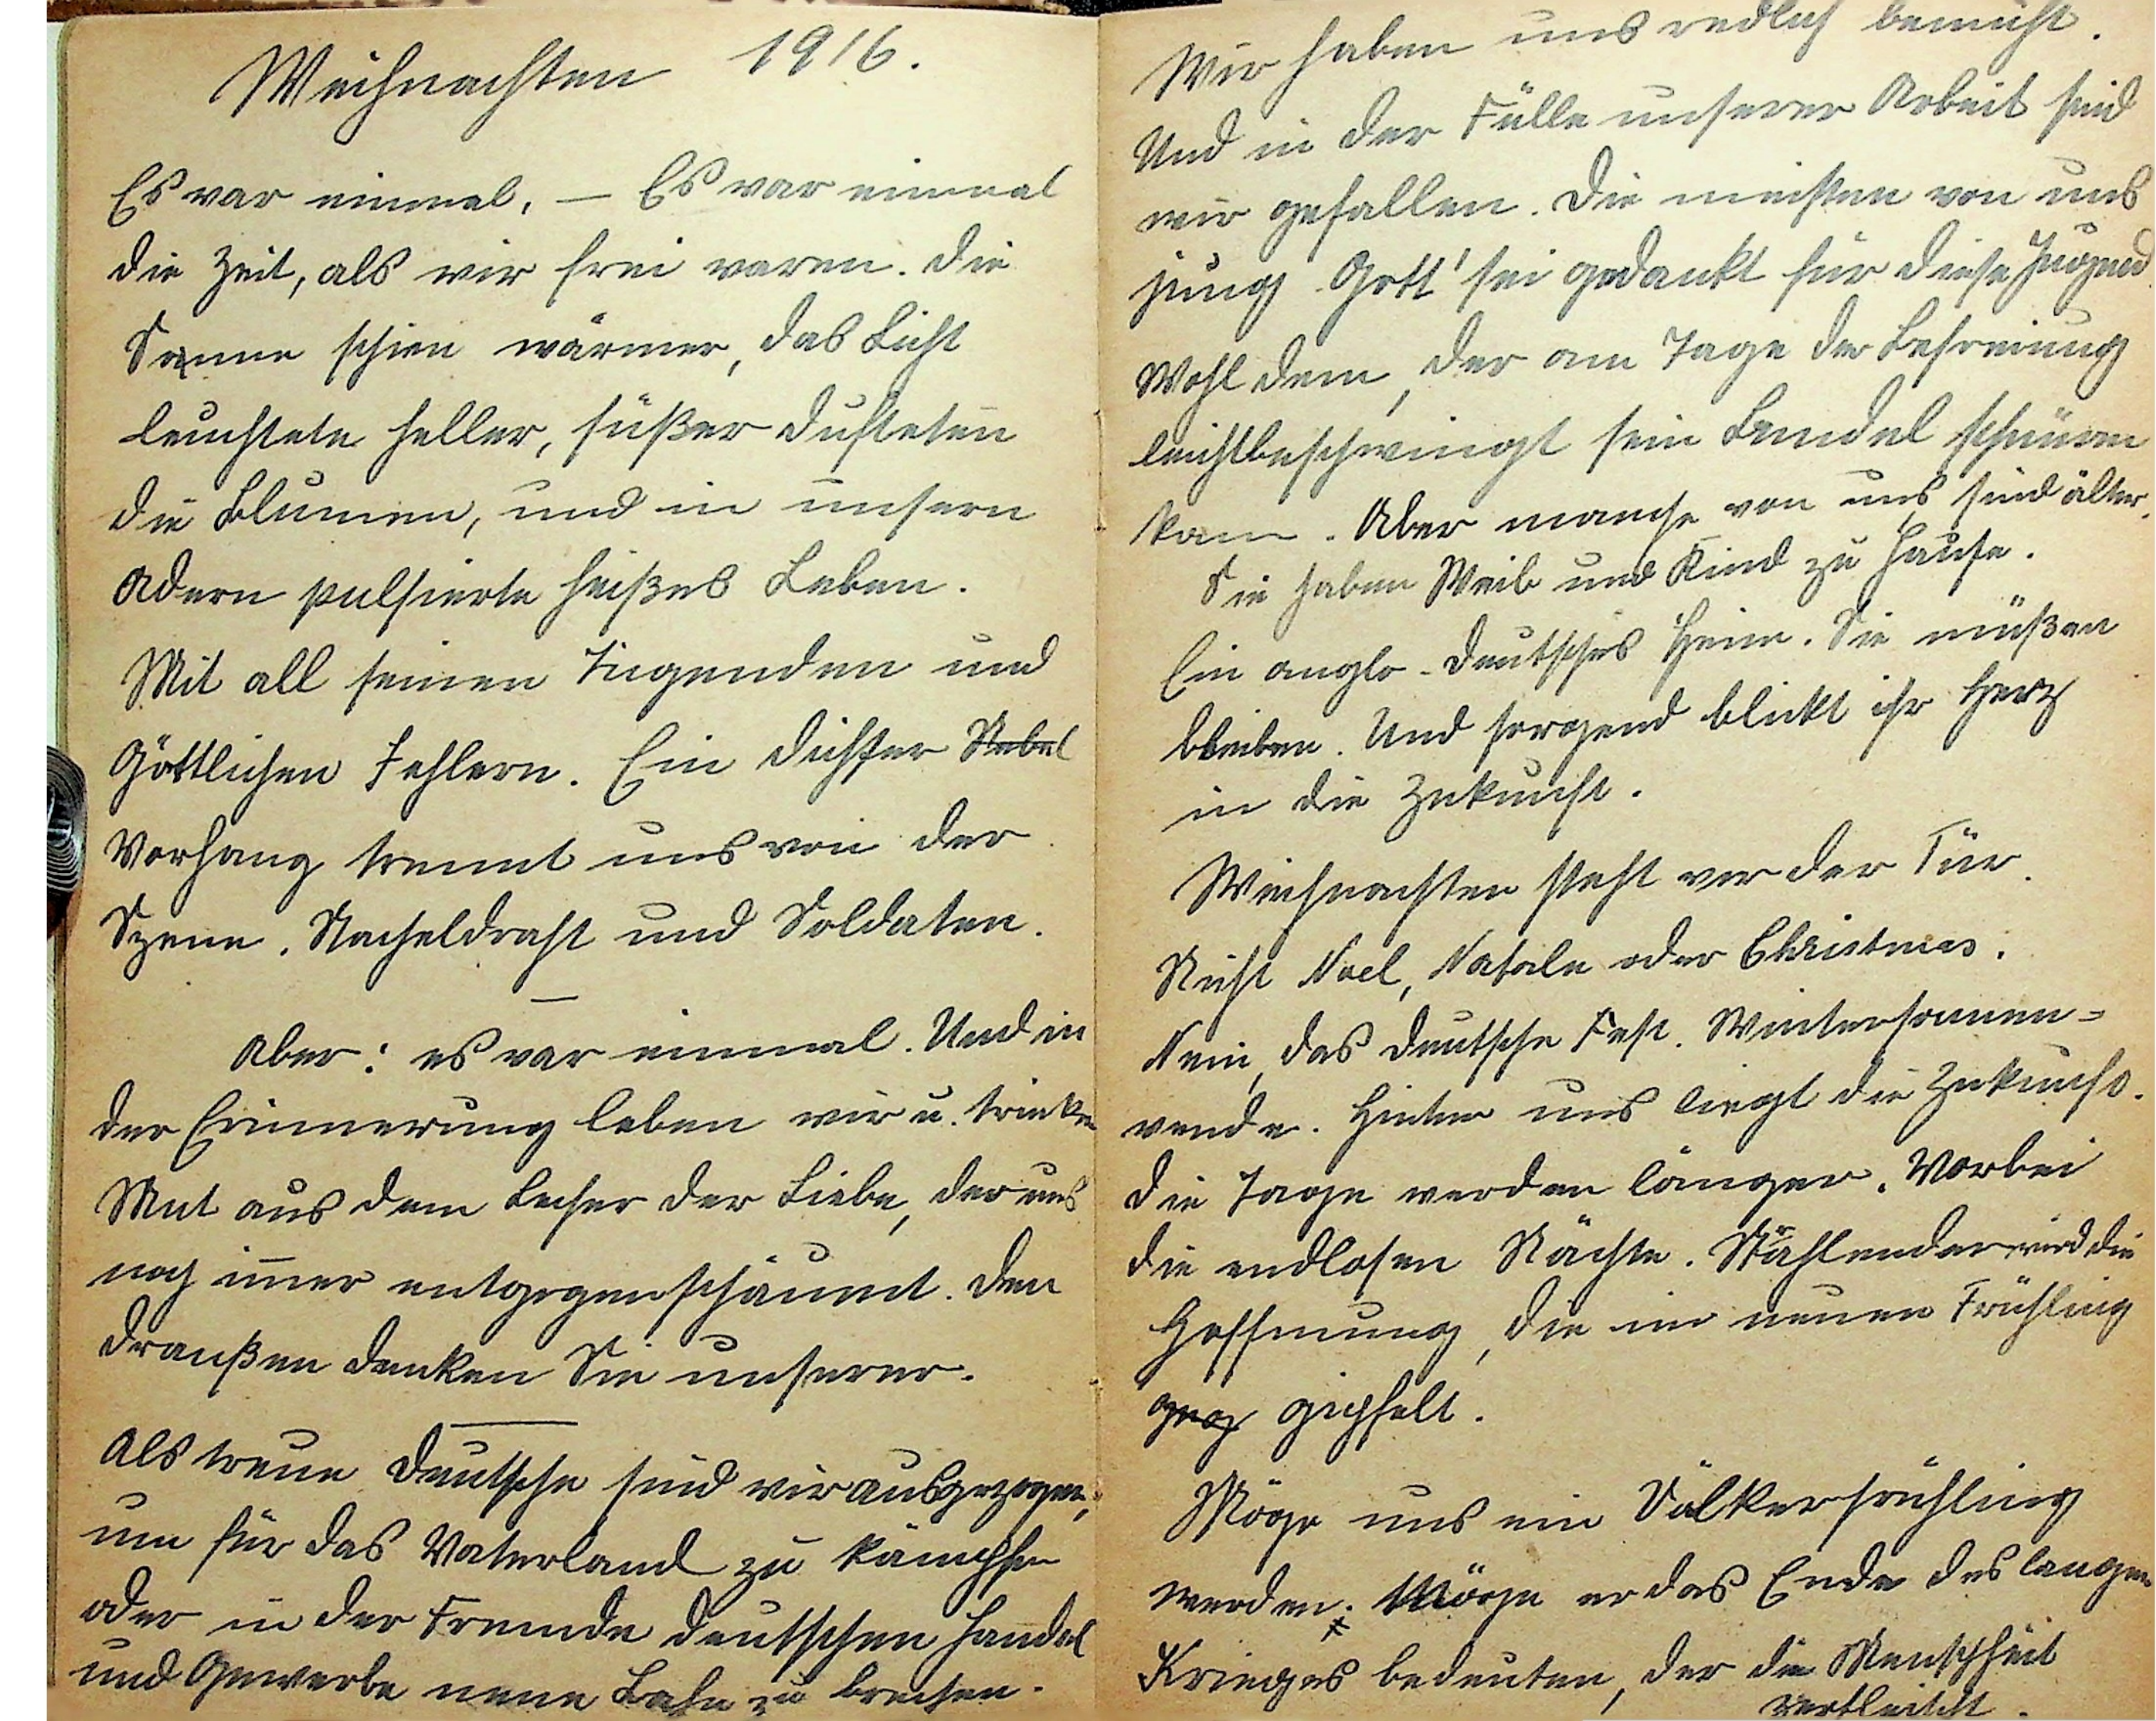 Weihnachten 1916.
Es war einmal. — Es war einmal
die Zeit, als wir frei waren. Die
Sonne schien wärmer, das Licht
leuchtete heller, süßer dufteten
die Blumen, und in unsern
Adern pulsierte heißes Leben.
Mit all seinen Tugenden und
Göttlichen Fehlern. Ein dichter Nebel
Vorhang trennt uns von der
Szene. Stacheldraht und Soldaten.
—
Aber: es war einmal. Und in
der Erinnerung leben wir u. trinken
Mut aus dem Becher der Liebe, der uns
noch immer entgegenschäumt. Den
draußen denken Sie unserer.
Als treue Deutsche sind wir ausgezogen,
um für das Vaterland zu kämpfen
oder in der Fremde deutschen Handel
und Gewerbe neue Bahn zu brechen.
Wir haben uns redlich bemüht.
Und in der Fülle unserer Arbeit sind
wir gefallen. Die meisten von uns
jung. Gott' sei gedankt für diese Jugend
Wohl dem, der am Tage der Befreiung
leichtbeschwingt sein Bündel schnüren
kann. Aber manche von uns sind älter.
Sie haben Weib und Kind zu Hause.
Ein anglo-deutsches Heim. Sie müßen
bleiben. Und sorgend blickt ihr Herz
in die Zukunft.
Weihnachten steht vor der Tür.
Nicht Noel, Natale oder Christmas.
Nein, das deutsche Fest. Wintersonnen=
wende. Hinter uns liegt die Zukunft.
Die Tage werden länger. Vorbei
die endlosen Nächte. Strahlender wird die
Hoffnung, die im neuen Frühling
gipfelt.
Möge uns ein Völkerfrühling
werden. Möge er das Ende des langen
Krieges bedeuten, der die Menschheit